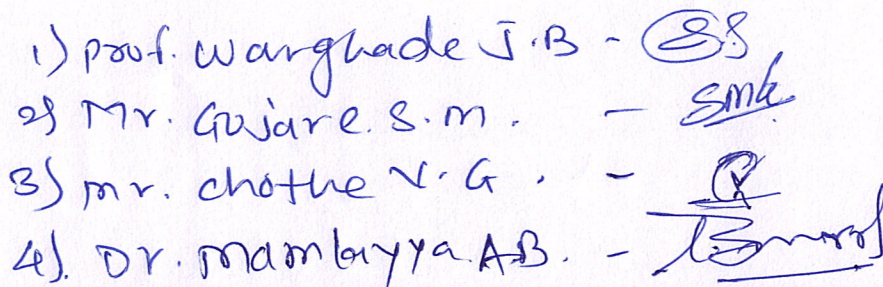 1) prof. warghade J.B -
2) Mr. Gojare. S. m. -
3) mr. chothe V. G. -
4). Dr. mambayya A.B. -